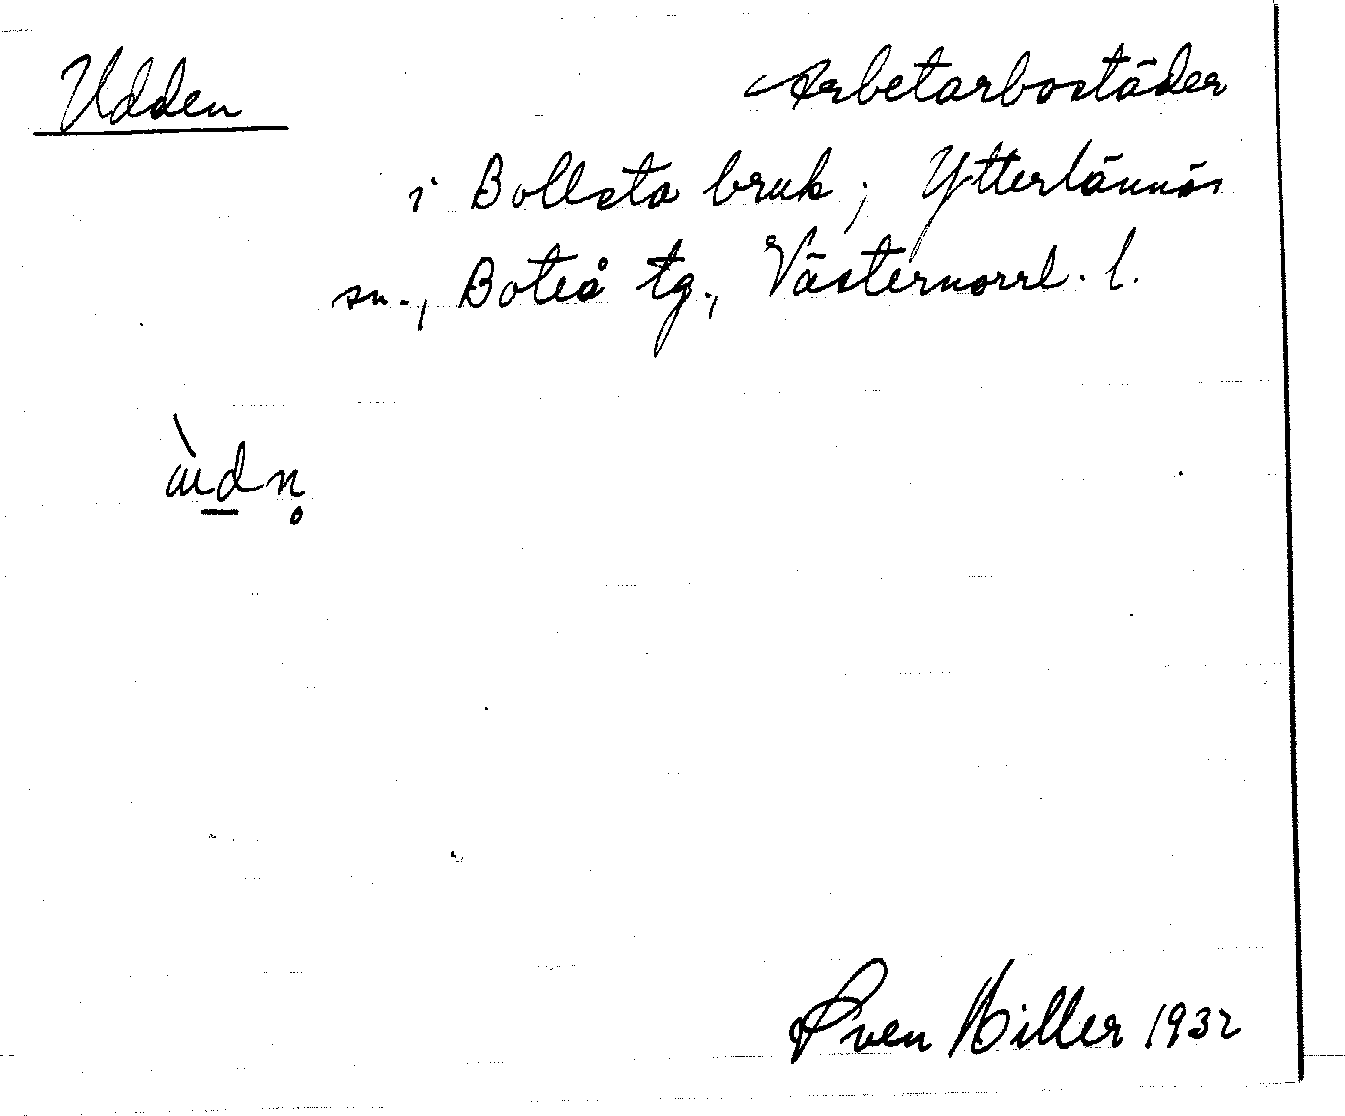 Udden Arbetarbostäder
i Bollsta bruk; Ytterlännäs
sn., Boteå tg., Västernorrl. l.
ɯ̀d̲n̥
Sven Hiller 1932